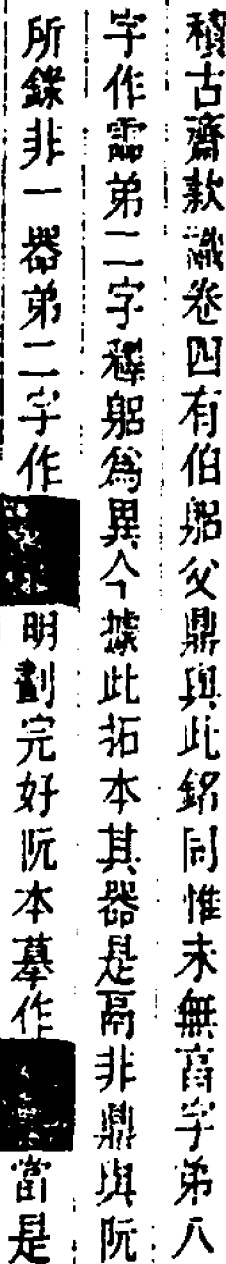 積古齋款識卷四有伯䚻父鼎與此銘同惟末無鬲字第八
字作霝弟二字釋䚻為異今據此拓本其器是鬲非鼎與阮
所錄非一器弟二字作明劃完好阮本摹作當是